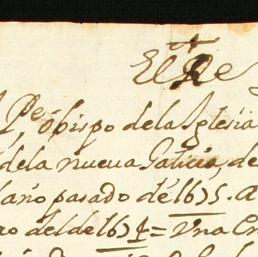 El Re
Pe obispo dela Iglesia
dela nueua Galicia, de
año pasado de 1675. a
ro del de 167 = Una